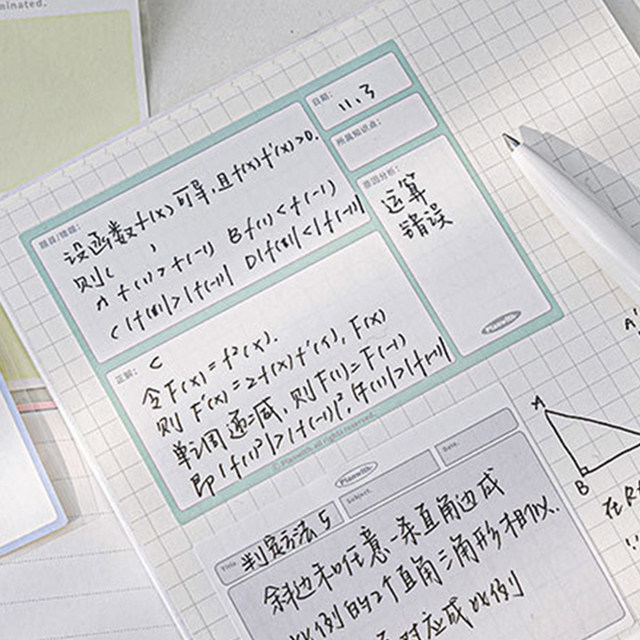 minated.
错误/错题:
设函数f(x)可导,且f(x)f'(x)>0,
则( )
A f(1)>f(-1) B f(1)<f(-1)
C |f(1)|>|f(-1)| D |f(1)|<|f(-1)|
日期:
11.3
所属知识点:
原因分析:
运算
错误
Planwith
正解:
C
令F(x)=f²(x).
则F'(x)=2f(x)f'(x),F(x)
单调递减,则F(1)=F(-1)
即|f(1)²|>|f(-1)|²,|f(1)|>|f(-1)|
© Planwith. all rights reserved.
Planwith
Title.
判定方法5
Subject.
Date.
斜边和任意一条直角边成
比例的2个直角三角形相似.
对应成比例
A
B
A'
在Rt